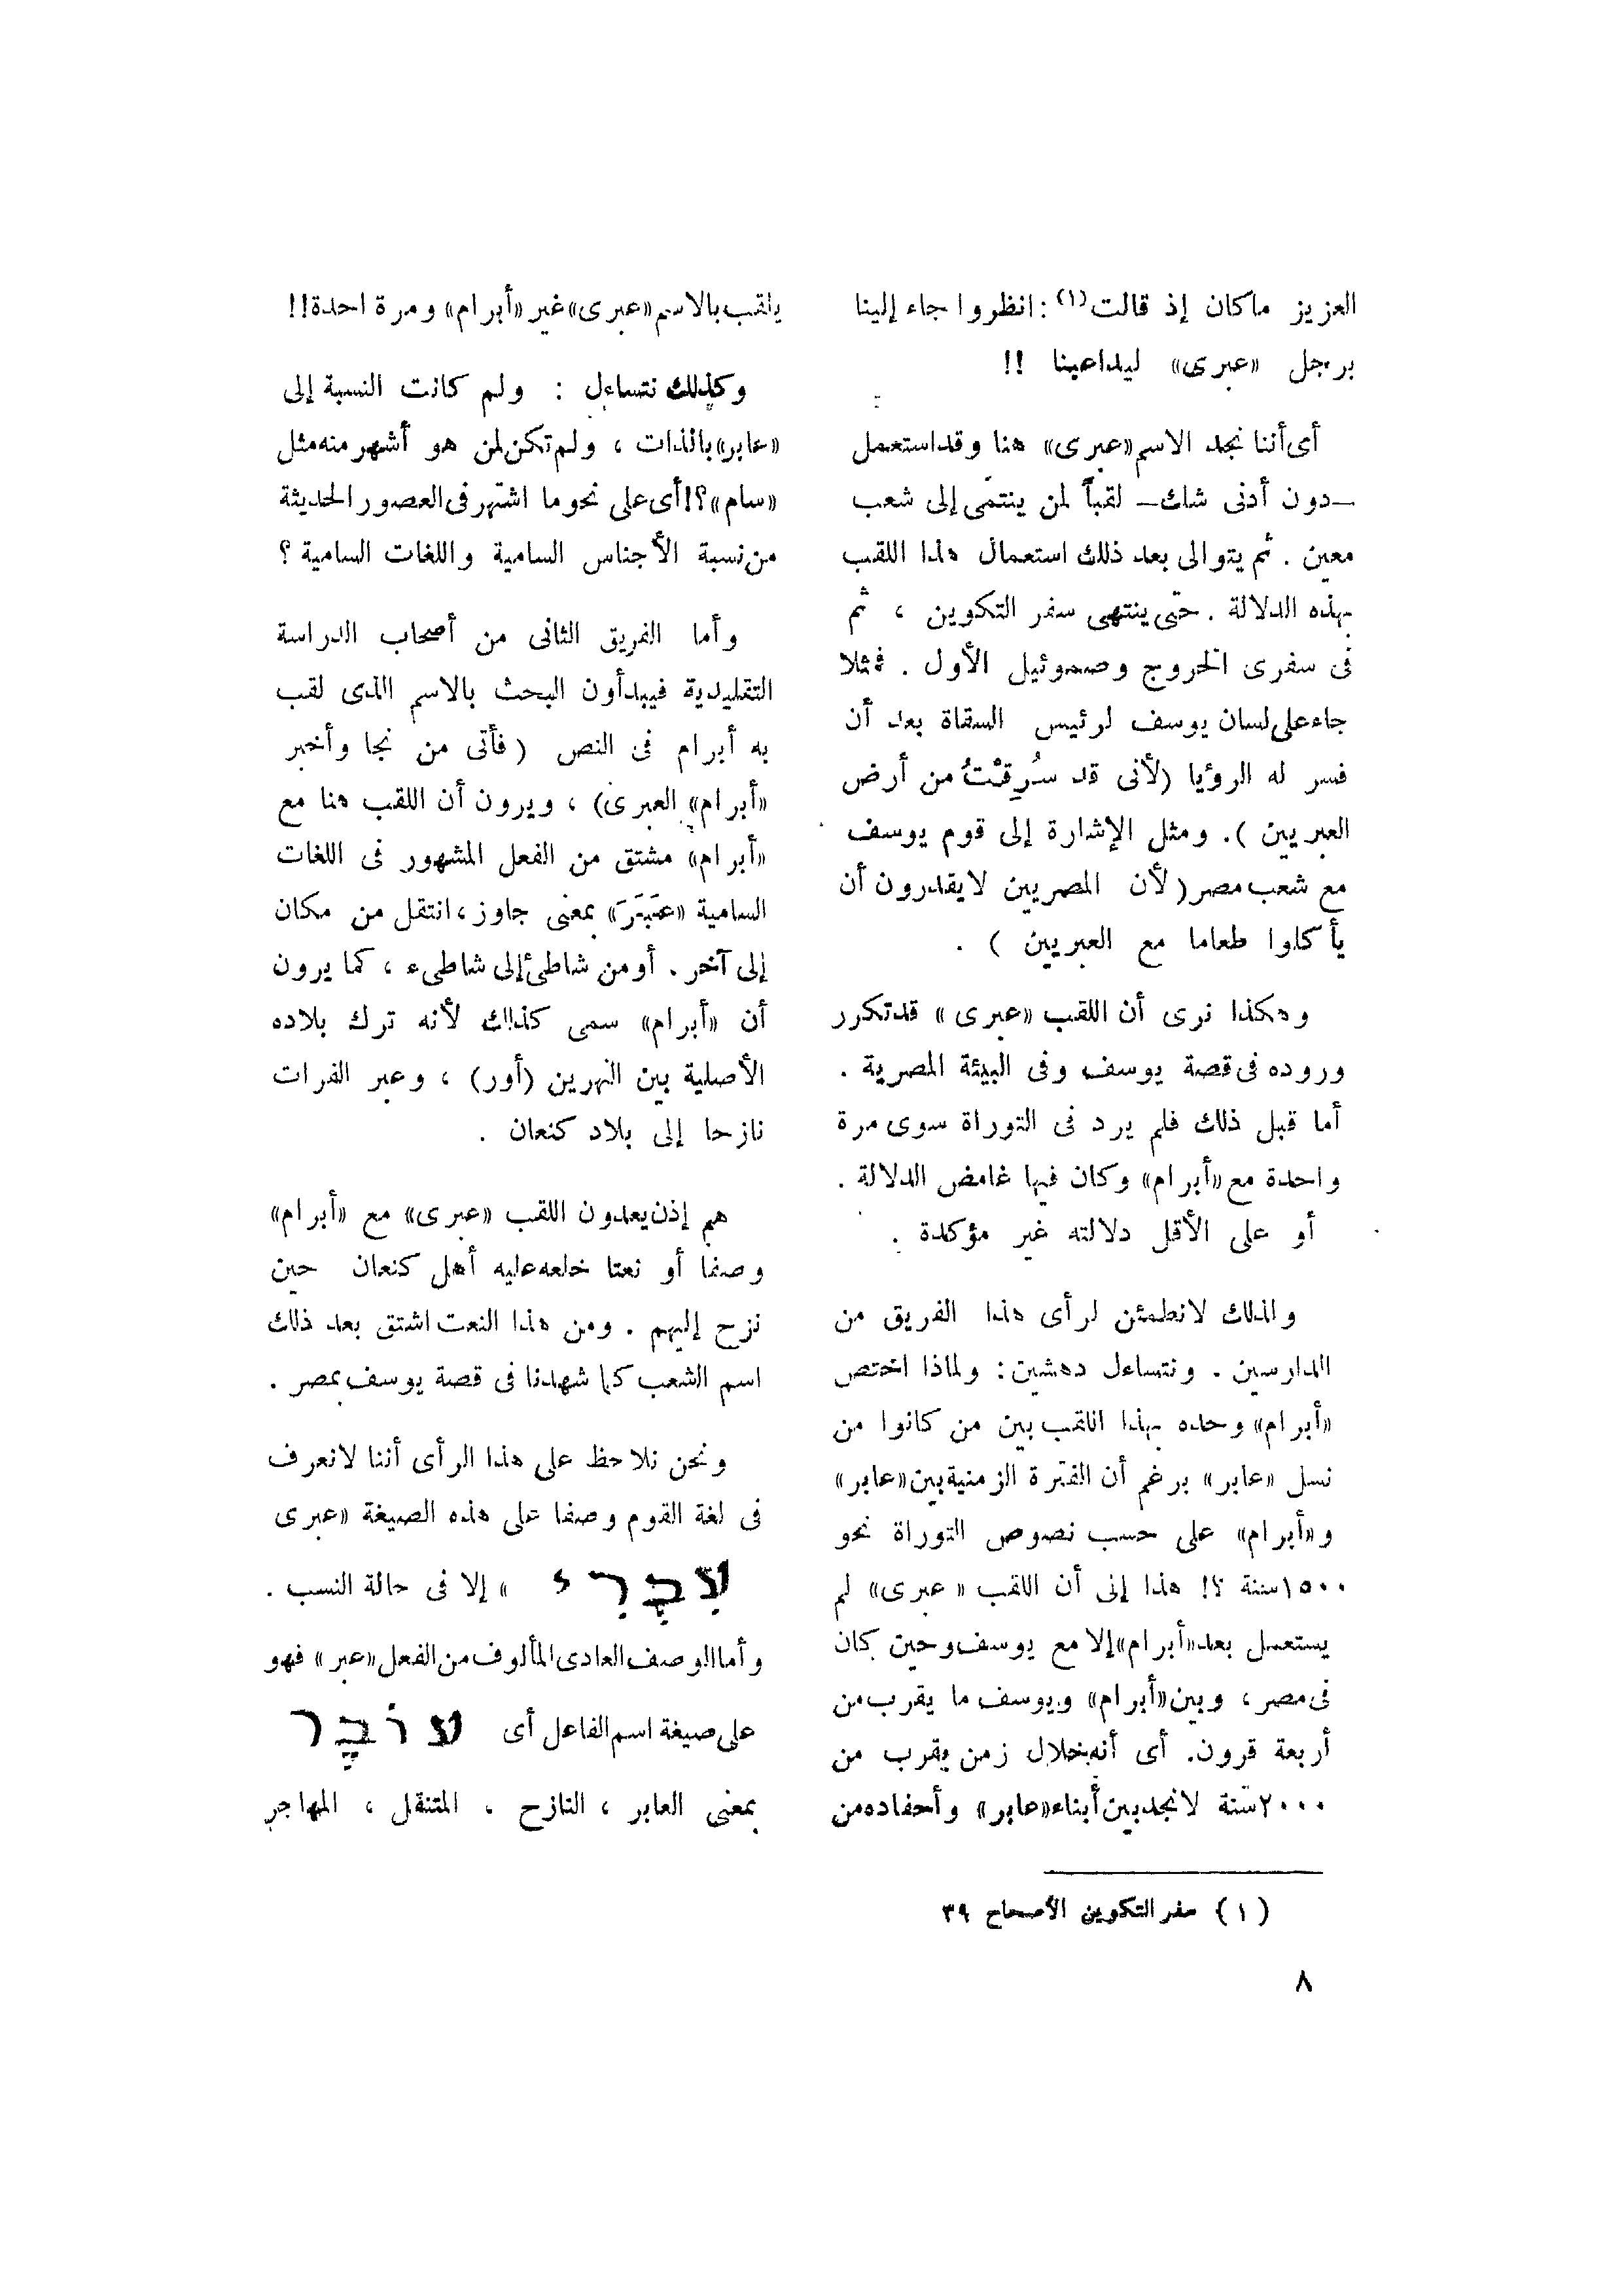 العزيز ماكان إذ قالت(١) : انظروا جاء إلينا
برجل «عبرى» ليداعبنا !!
أى أننا نجد الاسم «عبرى» هنا وقد استعمل
—دون أدنى شك— لقباً لمن ينتمى إلى شعب
معين . ثم يتوالى بعد ذلك استعمال هذا اللقب
بهذه الدلالة . حتى ينتهى سفر التكوين ، ثم
فى سفرى الخروج وصموئيل الأول . فمثلا
جاء على لسان يوسف لرئيس السقاة بعد أن
فسر له الرؤيا (لأنى قد سُرِقْتُ من أرض
العبريين ). ومثل الإشارة إلى قوم يوسف
مع شعب مصر (لأن المصريين لايقدرون أن
يأكلوا طعاما مع العبريين ) .
وهكذا نرى أن اللقب «عبرى» قد تكرر
وروده فى قصة يوسف وفى البيئة المصرية .
أما قبل ذلك فلم يرد فى التوراة سوى مرة
واحدة مع «أبرام» وكان فيها غامض الدلالة .
أو على الأقل دلالته غير مؤكدة .
ولذلك لانطمئن لرأى هذا الفريق من
الدارسين . ونتساءل دهشين : ولماذا اختص
«أبرام» وحده بهذا اللقب بين من كانوا من
نسل «عابر» برغم أن الفترة الزمنية بين «عابر»
و«أبرام» على حسب نصوص التوراة نحو
١٥٠٠ سنة ؟! هذا إلى أن اللقب « عبرى» لم
يستعمل بعد «أبرام» إلا مع يوسف وحين كان
فى مصر ، وبين «أبرام» ويوسف ما يقرب من
أربعة قرون. أى أنه خلال زمن يقرب من
٢٠٠٠ سنة لانجد بين أبناء «عابر» وأحفاده من
(١) سفر التكوين الأصحاح ٣٩
يلقب بالاسم «عبرى» غير «أبرام» ومرة احدة!!
وكذلك نتساءل : ولم كانت النسبة إلى
«عابر» بالذات ، ولم تكن لمن هو أشهر منه مثل
«سام»؟! أى على نحو ما اشتهر فى العصور الحديثة
من نسبة الأجناس السامية واللغات السامية ؟
وأما الفريق الثانى من أصحاب الدراسة
التقليدية فيبدأون البحث بالاسم الذى لقب
به أبرام فى النص (فأتى من نجا وأخبر
«أبرام» العبرى) ، ويرون أن اللقب هنا مع
«أبرام» مشتق من الفعل المشهور فى اللغات
السامية «عَبَرَ» بمعنى جاوز ، انتقل من مكان
إلى آخر . أومن شاطئ إلى شاطىء ، كما يرون
أن «أبرام» سمى كذلك لأنه ترك بلاده
الأصلية بين النهرين (أور) ، وعبر الفرات
نازحا إلى بلاد كنعان .
هم إذن يعدون اللقب «عبرى» مع «أبرام»
وصفا أو نعتا خلعه عليه أهل كنعان حين
نزح إليهم . ومن هذا النعت اشتق بعد ذلك
اسم الشعب كما شهدنا فى قصة يوسف بمصر .
ونحن نلاحظ على هذا الرأى أننا لانعرف
فى لغة القوم وصفا على هذه الصيغة «عبرى
עִבְרִי » إلا فى حالة النسب .
وأما الوصف العادى المألوف من الفعل «عبر» فهو
على صيغة اسم الفاعل أى עוֹבֵר
بمعنى العابر ، النازح ، المتنقل ، المهاجر
٨